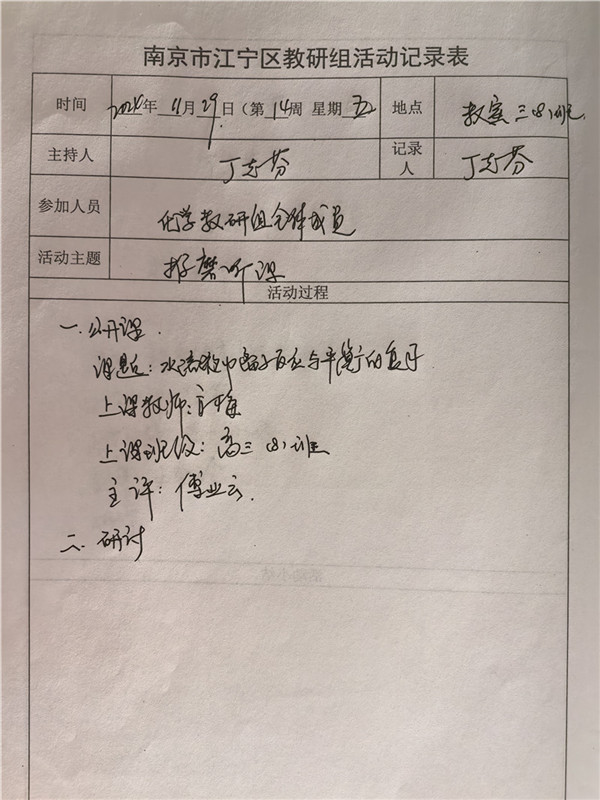 南京市江宁区教研组活动记录表
时间 2024年 11月 29日（第 14周 星期 五 地点 教室 三（8）班
主持人 丁志芬 记录人 丁志芬
参加人员 化学教研组全体成员
活动主题 听课
活动过程
一.公开课.
课题：水溶液中离子反应与平衡的复习
上课教师：
上课班级：高三（8）班
主评：傅业云.
二.研讨